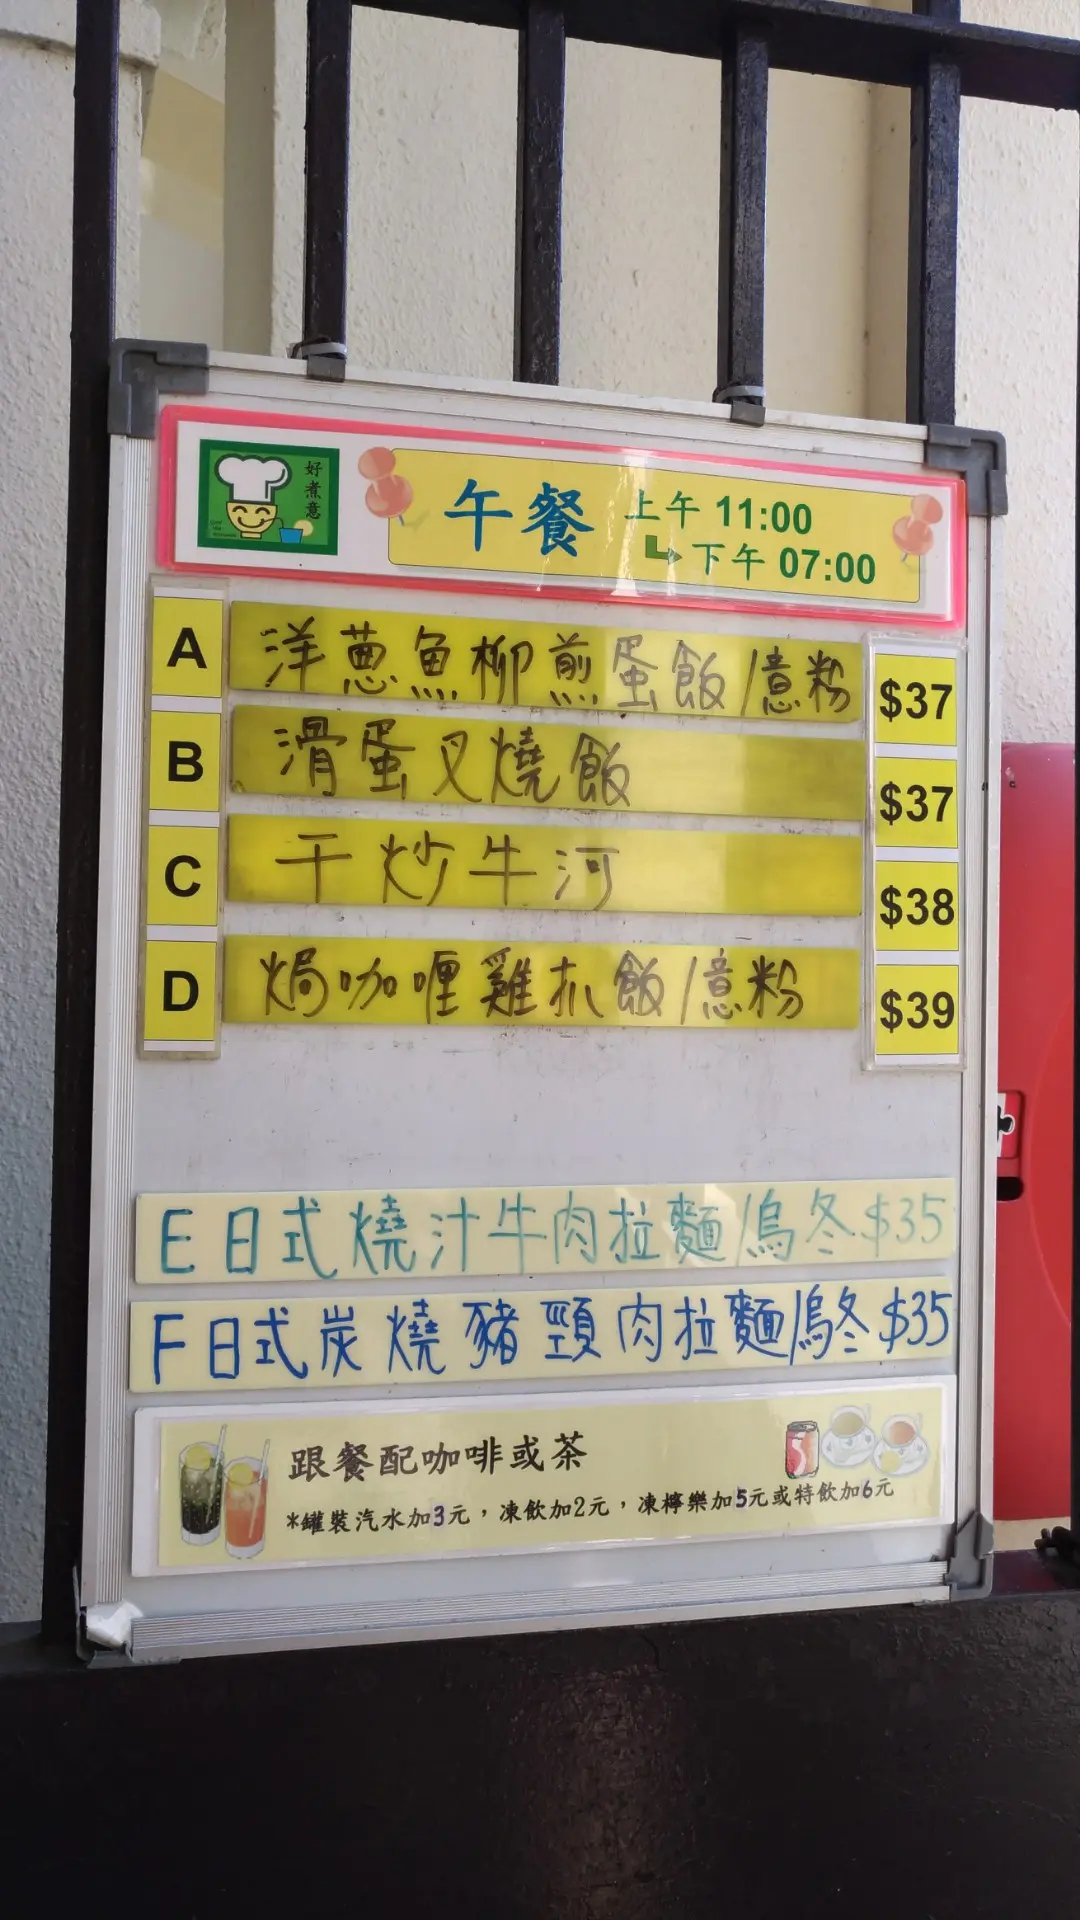 好煮意
午餐 上午 11:00
下午 07:00
A 洋蔥魚柳煎蛋飯/意粉 $37
B 滑蛋叉燒飯 $37
C 干炒牛河 $38
D 焗咖喱雞扒飯/意粉 $39
E 日式燒汁牛肉拉麵/烏冬 $35
F 日式炭燒豬頸肉拉麵/烏冬 $35
跟餐配咖啡或茶
*罐裝汽水加3元，凍飲加2元，凍檸樂加5元或特飲加6元